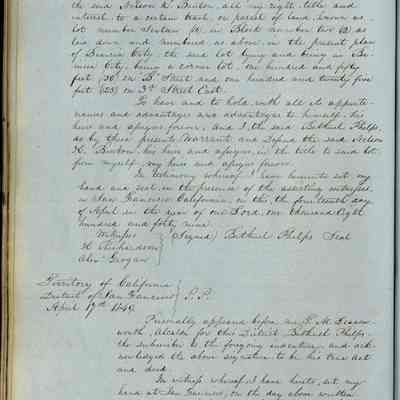 the said Nelson K. Benton, all my right, title and
interest, to a certain tract, or parcel of land, known as
lot number in Block number two (2) as
laid down and numbered as above, in the present plan
of Benicia City, the said lot lying and being in Be-
nicia City, being a corner lot, one hundred and fifty
feet (150) on B. Street and one hundred and twenty five
feet (125) on 3rd Street East.
To have and to hold, with all its appurte-
nances and advantages and advantages to himself, his
heirs and assigns forever, And I, the said Bethuel Phelps,
do by these presents, Warrant and Defend the said Nelson
K. Benton, his heirs and assigns, in the title to said lot,
from myself, my heirs and assigns forever.
In testimony whereof I have hereunto set my
hand and seal, in the presence of the assenting witnesses,
in San Francisco California, on this, the fourteenth day
of April in the year of our Lord, one thousand Eight
hundred and forty nine.
Witness } (signed) Bethuel Phelps Seal
Richardson
Alex Grogan
Territory of California
District of San Francisco } S.S.
April 17th 1849.
Personally appeared before me, T. M. Leaven-
worth, Alcalde for this District, Bethuel Phelps,
the subscriber to the foregoing indenture, and ack-
nowledged the above signature to be his true act
and deed.
In witness whereof I have hereto, set my
hand at San Francisco, on the day above written